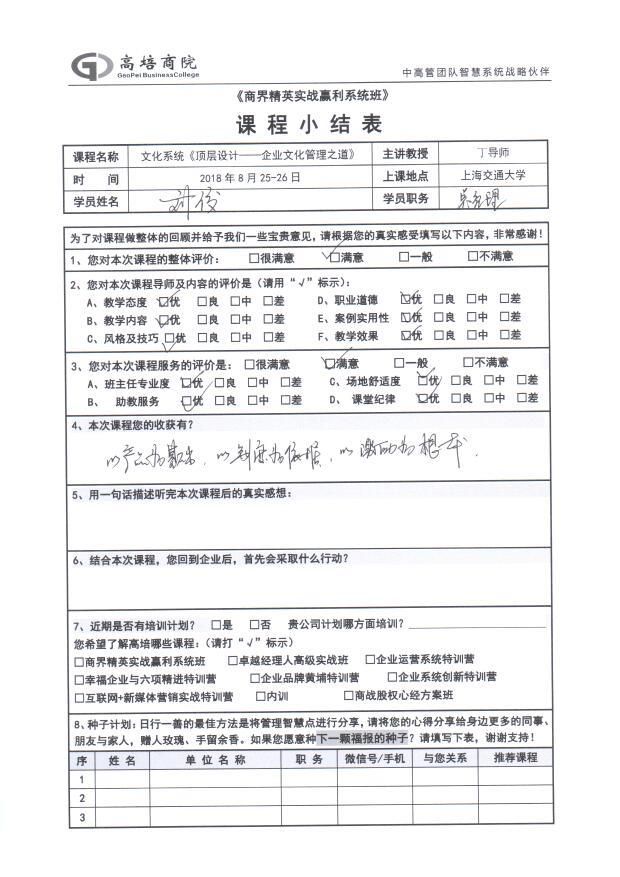 高培商院
GeoPei BusinessCollege
中高管团队智慧系统战略伙伴
《商界精英实战赢利系统班》
课程小结表
课程名称 文化系统《顶层设计——企业文化管理之道》 主讲教授 丁导师
时 间 2018年8月25-26日 上课地点 上海交通大学
学员姓名 学员职务 总经理
为了对课程做整体的回顾并给予我们一些宝贵意见，请根据您的真实感受填写以下内容，非常感谢！
1、您对本次课程的整体评价： □很满意 □满意 □一般 □不满意
2、您对本次课程导师及内容的评价是（请用“√”标示）：
A、教学态度 □优 □良 □中 □差 D、职业道德 □优 □良 □中 □差
B、教学内容 □优 □良 □中 □差 E、案例实用性 □优 □良 □中 □差
C、风格及技巧 □优 □良 □中 □差 F、教学效果 □优 □良 □中 □差
3、您对本次课程服务的评价是： □很满意 □满意 □一般 □不满意
A、班主任专业度 □优 □良 □中 □差 C、场地舒适度 □优 □良 □中 □差
B、 助教服务 □优 □良 □中 □差 D、课堂纪律 □优 □良 □中 □差
4、本次课程您的收获有？
以产品为基础，以制度为依据，以激励为根本。
5、用一句话描述听完本次课程后的真实感想：
6、结合本次课程，您回到企业后，首先会采取什么行动？
7、近期是否有培训计划？ □是 □否 贵公司计划哪方面培训？
您希望了解高培哪些课程：（请打“√”标示）
□商界精英实战赢利系统班 □卓越经理人高级实战班 □企业运营系统特训营
□幸福企业与六项精进特训营 □企业品牌黄埔特训营 □企业系统创新特训营
□互联网+新媒体营销实战特训营 □内训 □商战股权心经方案班
8、种子计划：日行一善的最佳方法是将管理智慧点进行分享，请将您的心得分享给身边更多的同事、
朋友与家人，赠人玫瑰、手留余香。如果您愿意种下一颗福报的种子？请填写下表，谢谢支持！
序 姓名 单位名称 职务 微信号/手机 与您关系 推荐课程
1
2
3